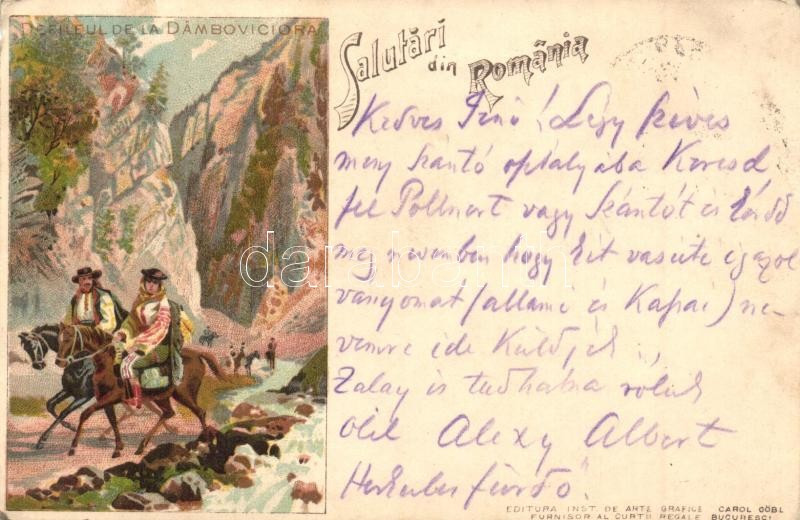 DEFILEUL DE LA DÂMBOVICIORA
Salutări din România
Kedves Jenő! Légy szíves
menj Szántó osztályába Keresd
fel Pollnert vagy Szántót és kérdd
meg nevemben hogy két vasúti igazol
ványomat (allami és Kassai) ne-
vemre ide Küldjék
Zalay is tudhatna róluk
ölel Alexy Albert
Herkulesfürdő
darabanth
EDITURA INST. DE ARTE GRAFICE CAROL GÖBL
FURNISOR AL CURTII REGALE BUCURESCI